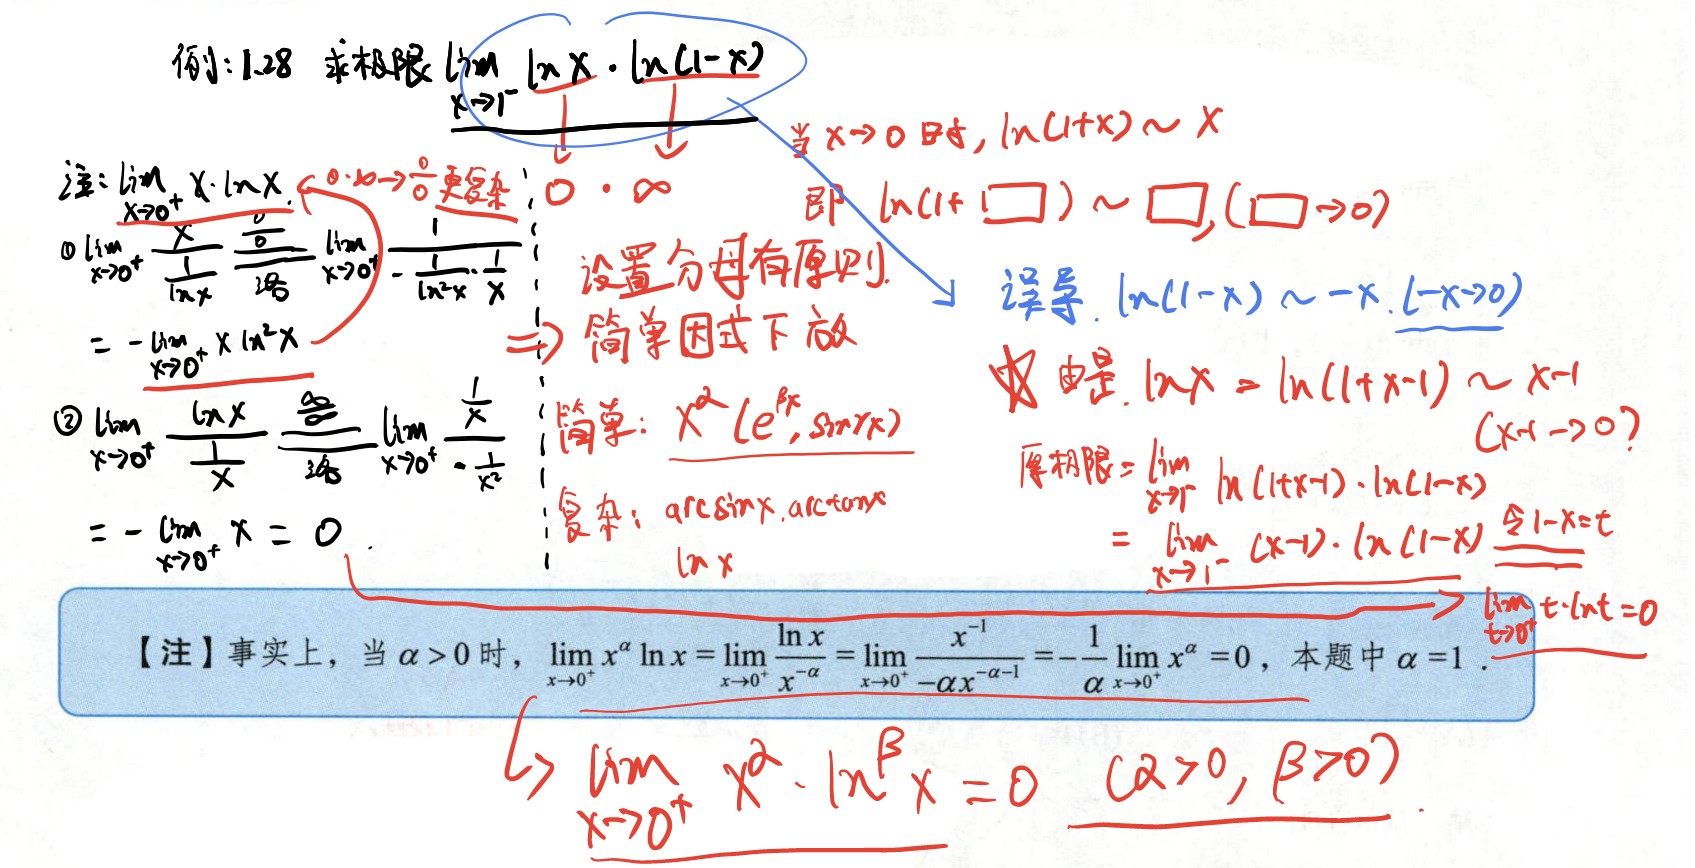 例:1.28 求极限 lim x→1⁻ lnx·ln(1-x)
0 · ∞
注: lim x→0⁺ x·lnx
0·∞→0/0 更复杂
① lim x→0⁺ x/(1/lnx) =(0/0 洛) lim x→0⁺ 1/(-1/ln²x·1/x)
= - lim x→0⁺ x ln²x
② lim x→0⁺ lnx/(1/x) =(∞/∞ 洛) lim x→0⁺ (1/x)/(-1/x²)
= - lim x→0⁺ x = 0.
设置分母有原则.
⇒ 简单因式下放
简单: x^α (e^{βx}, sinγx)
复杂: arcsinx, arctanx
lnx
当 x→0 时, ln(1+x) ~ x
即 ln(1+□) ~ □, (□→0)
误导. ln(1-x) ~ -x. (-x→0)
☆ 由是. lnx = ln(1+x-1) ~ x-1
(x-1→0)
原极限 = lim x→1⁻ ln(1+x-1)·ln(1-x)
= lim x→1⁻ (x-1)·ln(1-x) 令1-x=t
lim t→0⁺ t·lnt = 0
【注】事实上，当 α>0 时， lim x→0⁺ x^α ln x = lim x→0⁺ ln x/x^{-α} = lim x→0⁺ x^{-1}/(-αx^{-α-1}) = -1/α lim x→0⁺ x^α = 0，本题中 α=1．
lim x→0⁺ x^α·ln^β x = 0 (α>0, β>0).